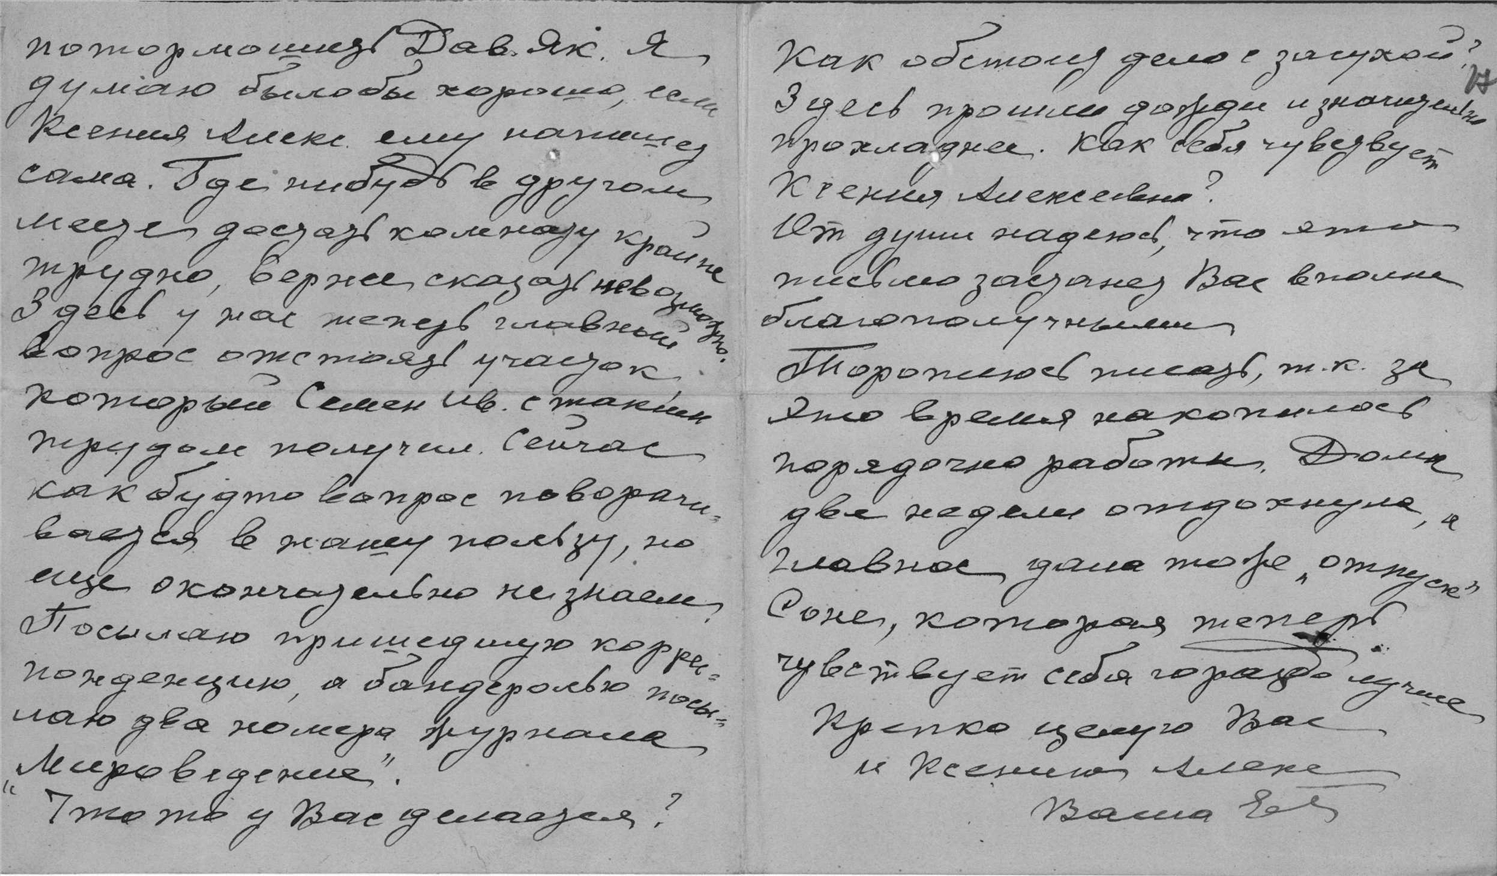 потормошить Дав. Як. Я
думаю было бы хорошо, если
Ксения Алекс. ему напишет
сама. Где нибудь в другом
месте достать комнату крайне
трудно, вернее сказать невозможно.
Здесь у нас теперь главный
вопрос отстоять участок
который Семен Ив. с таким
трудом получил. Сейчас
как будто вопрос поворачи-
вается в нашу пользу, но
еще окончательно не знаем.
Посылаю пришедшую коррес-
понденцию, а бандеролью посы-
лаю два номера журнала
„Мироведение".
Что то у Вас делается?
17
Как обстоит дело с засухой?
Здесь прошли дожди и значительно
прохладнее. Как себя чувствует
Ксения Алексеевна?
От души надеюсь, что это
письмо застанет Вас вполне
благополучными
Тороплюсь писать, т.к. за
это время накопилось
порядочно работы. Дома
две недели отдохнула, а
главное дала тоже „отпуск"
Соне, которая теперь
чувствует себя гораздо лучше
Крепко целую Вас
и Ксению Алекс
Ваша